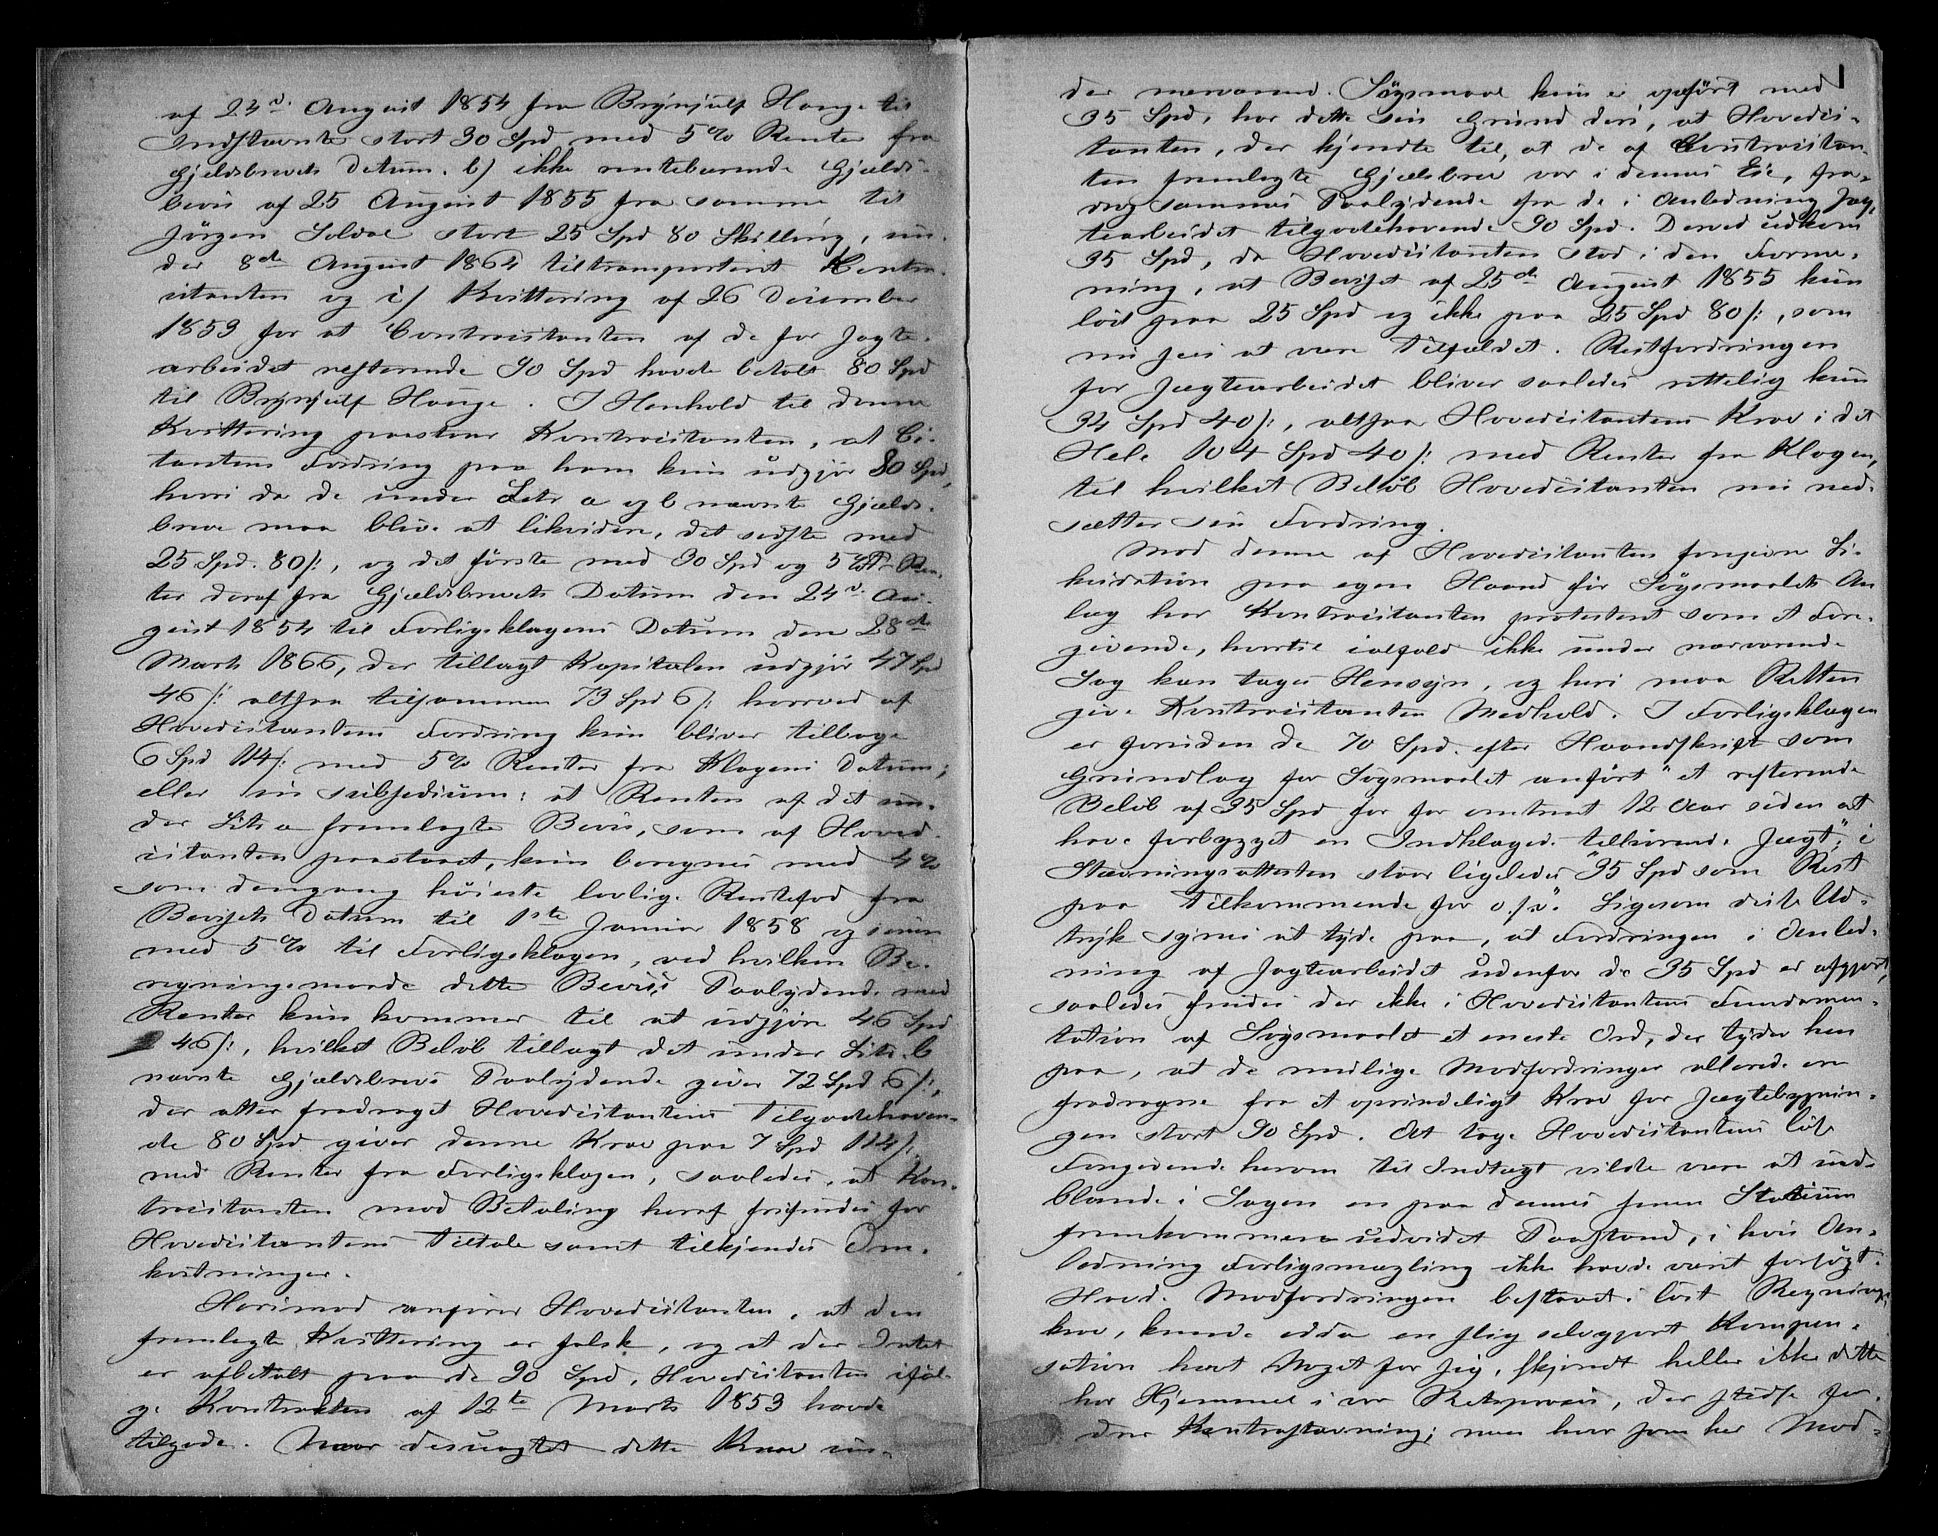 af 24d. August 1854 fra Brynjulf Hauge til
Indstævnte stort 30 Spd med 5 % Renter fra
Gjeldsbrevets Datum. b) ikke rentebærende Gjælds-
bevis af 25 August 1855 fra samme til
Jörgen Soldal stort 25 Spd 80 Skilling, un-
der 8de August 1864 tiltransporteret Contra-
citanten og c) Kvittering af 26 December
1853 for at Contracitanten af de for Jagte-
arbeidet resterende 90 Spd havde betalt 80 Spd
til Brynjulf Hauge. I Henhold til denne
Kvittering paastaar Kontracitanten, at Ci-
tantens Fordring paa ham kun udgjør 80 Spd,
hvori da de under Litr a og b nævnte Gjælds-
breve maa blive at likvidere, det sidste med
25 Spd. 80/:, og det første med 30 Spd og 5 % Ren-
ter deraf fra Gjældsbrevets Datum den 24d. Au-
gust 1854 til Forligsklagens Datum den 28de
Marts 1866, der tillagt Kapitalen udgjør 47 Spd
46/: altsaa tilsammen 73 Spd 6/: hvorved af
Hovedcitantens Fordring kun bliver tilbage
6 Spd 114/: med 5 % Renter fra Klagens Datum;
eller in subsidium: at Renten af det un-
der Litr a fremlagte Bevis, som af Hoved-
citanten paastaaet, kun beregnes med 4 %
som dengang høieste lovlige Rentefod fra
Bevisets Datum til 1ste Januar 1858 og siden
med 5 % til Forligsklagen, ved hvilken Be-
regningsmaade dette Bevis's Paalydende med
Renter kun kommer til at udgjøre 46 Spd
46/:, hvilket Beløb tillagt det under Litr. b
nævnte Gjældsbrevs Paalydende giver 72 Spd 6/:,
der atter fradraget Hovedcitantens Tilgodehaven-
de 80 Spd giver denne Krav paa 7 Spd 114/:
med Renter fra Forligsklagen, saaledes, at Kon-
tracitanten mod Betaling heraf frifindes for
Hovedcitantens Tiltale samt tilkjendes Om-
kostninger.
Herimod anfører Hovedcitanten, at den
fremlagte Kvittering er falsk, og at der Intet
er afbetalt paa de 90 Spd, Hovedcitanten iføl-
ge Kontrakten af 12te Marts 1853 havde
tilgode. Naar desuagtet dette Krav un-
1
der nærværend. Søgsmaal kun er opført med
35 Spd, har dette sin Grund deri, at Hovedci-
tanten, der kjendte til, at de af Contracitan-
ten fremlagte Gjældsbrev var i dennes Eie, fra-
drog sammes Paalydende fra de i Anledning Jag-
tearbeidet tilgodehavende 90 Spd. Derved udkom
35 Spd, da Hovedcitanten stod i den Forme-
ning, at Beviset af 25de August 1855 kun
lød paa 25 Spd og ikke paa 25 Spd 80/:, som
nu sees at være Tilfældet. Restfordringen
for Jægtearbeidet bliver saaledes rettelig kun
34 Spd 40/:, altsaa Hovedcitantens Krav i det
Hele 104 Spd 40/: med Renter fra Klagen,
til hvilket Beløb Hovedcitanten nu ned-
sætter sin Fordring.
Mod denne af Hovedcitanten foregivne Li-
kvidation paa egen Haand før Søgsmaalets An-
læg har Kontracitanten protesteret som et Fore-
givende, hvortil ialfald ikke under nærværende
Sag kan tages Hensyn, og heri maa Retten
give Kontracitanten Medhold. I Forligsklagen
er foruden de 70 Spd. efter Haandskrift som
Grundlag for Søgsmaalet anført "et resterende
Beløb af 35 Spd for for omtrent 12 Aar siden at
have forbygget en Indklagede tilhørende Jægt"; i
Stævningsattesten staar ligeledes "35 Spd som Rest
paa Tilkommende for o.s.v." Ligesom disse Ud-
tryk synes at tyde paa, at Fordringen i Anled-
ning af Jagtearbeidet udenfor de 35 Spd er afgjort,
saaledes findes der ikke i Hovedcitantens Fundamen-
tation af Søgsmaalet et eneste Ord, der tyder hen
paa, at de mulige Modfordringer allerede ere
fradragne fra et oprindeligt Krav for Jægtebygnin-
gen stort 90 Spd. At tage Hovedcitantens løse
Foregivende herom til Indtægt vilde være at ind-
blande i Sagen en paa dennes senere Stadium
fremkommen udvidet Paastand, i hvis An-
ledning Forligsmægling ikke havde været forsøgt.
Havde Modfordringen bestaaet i løst Regnings-
krav, kunde endda en slig selvgjort Kompen-
sation havt Noget for sig, skjøndt heller ikke dette
har Hjemmel i vor Retspraxis, der stedse for-
drer Kontrastævning; men hvor som her Mod-